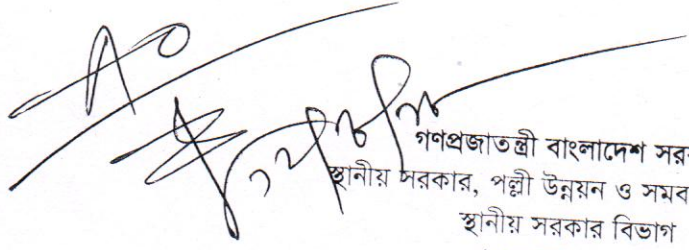 গণপ্রজাতন্ত্রী বাংলাদেশ সরক
স্থানীয় সরকার, পল্লী উন্নয়ন ও সমব
স্থানীয় সরকার বিভাগ